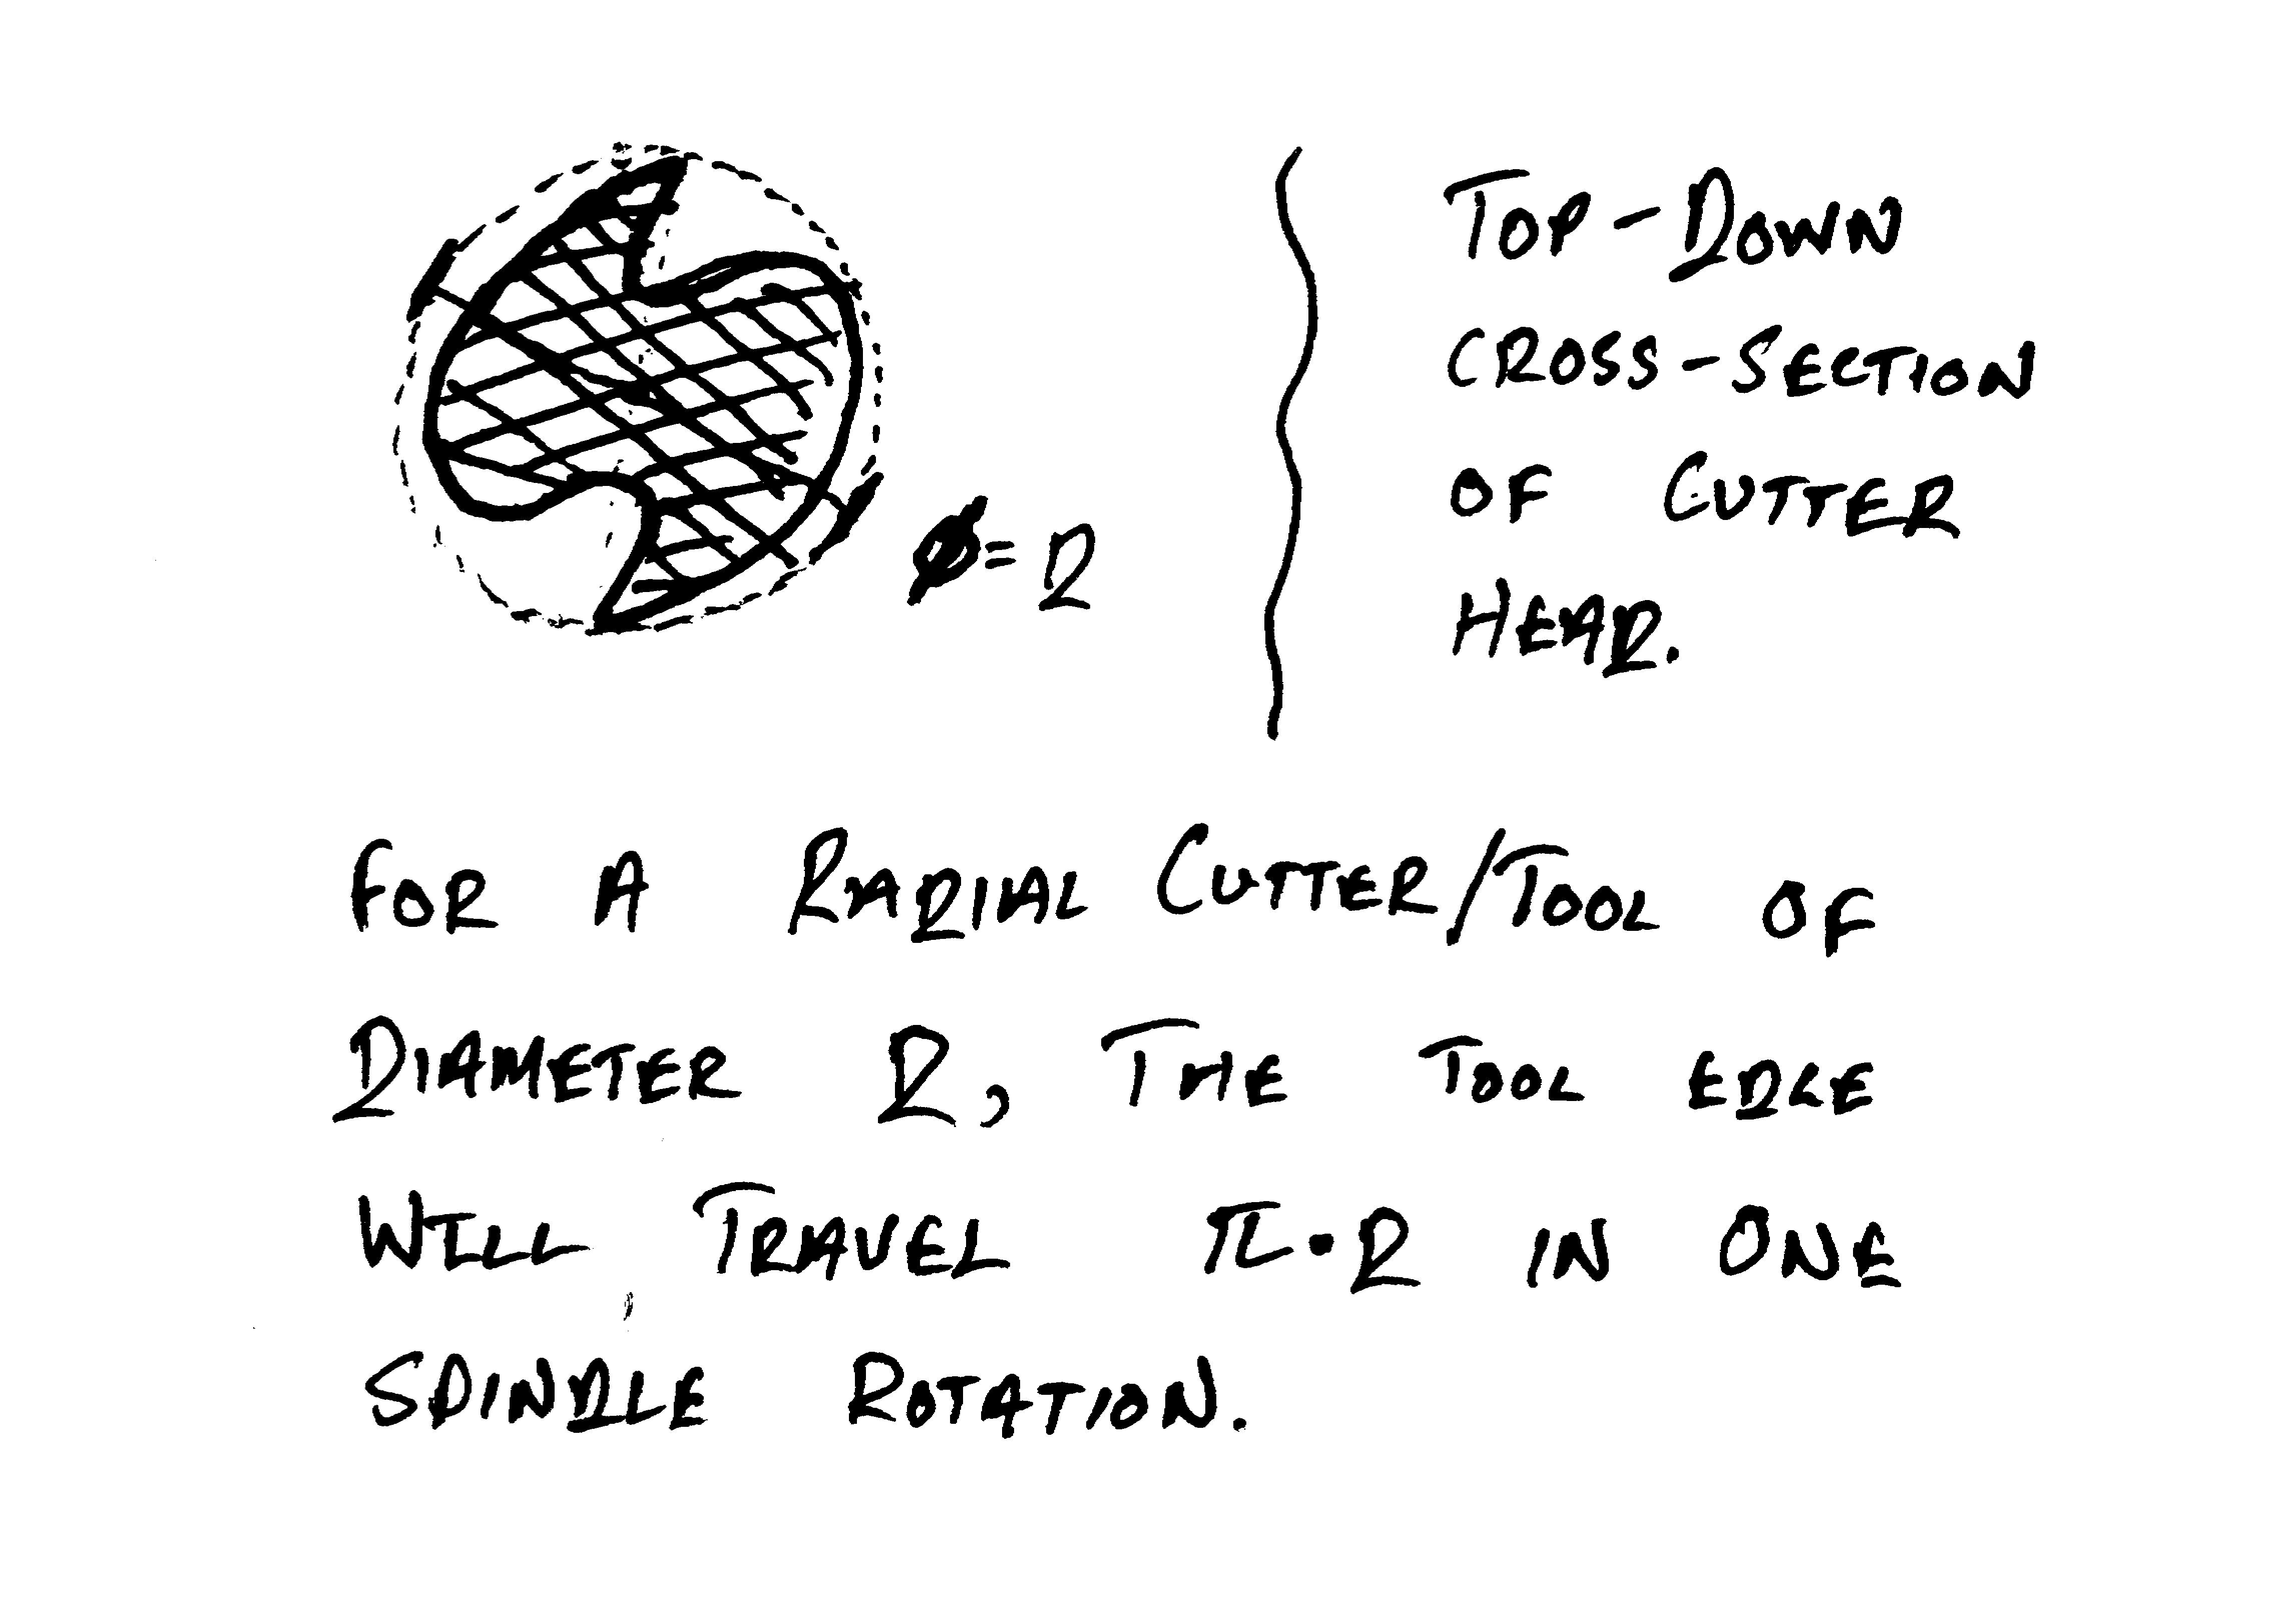 TOP-DOWN
CROSS-SECTION
OF CUTTER
HEAD.
Ø= D
FOR A RADIAL CUTTER/TOOL OF
DIAMETER D, THE TOOL EDGE
WILL TRAVEL π·D IN ONE
SPINDLE ROTATION.